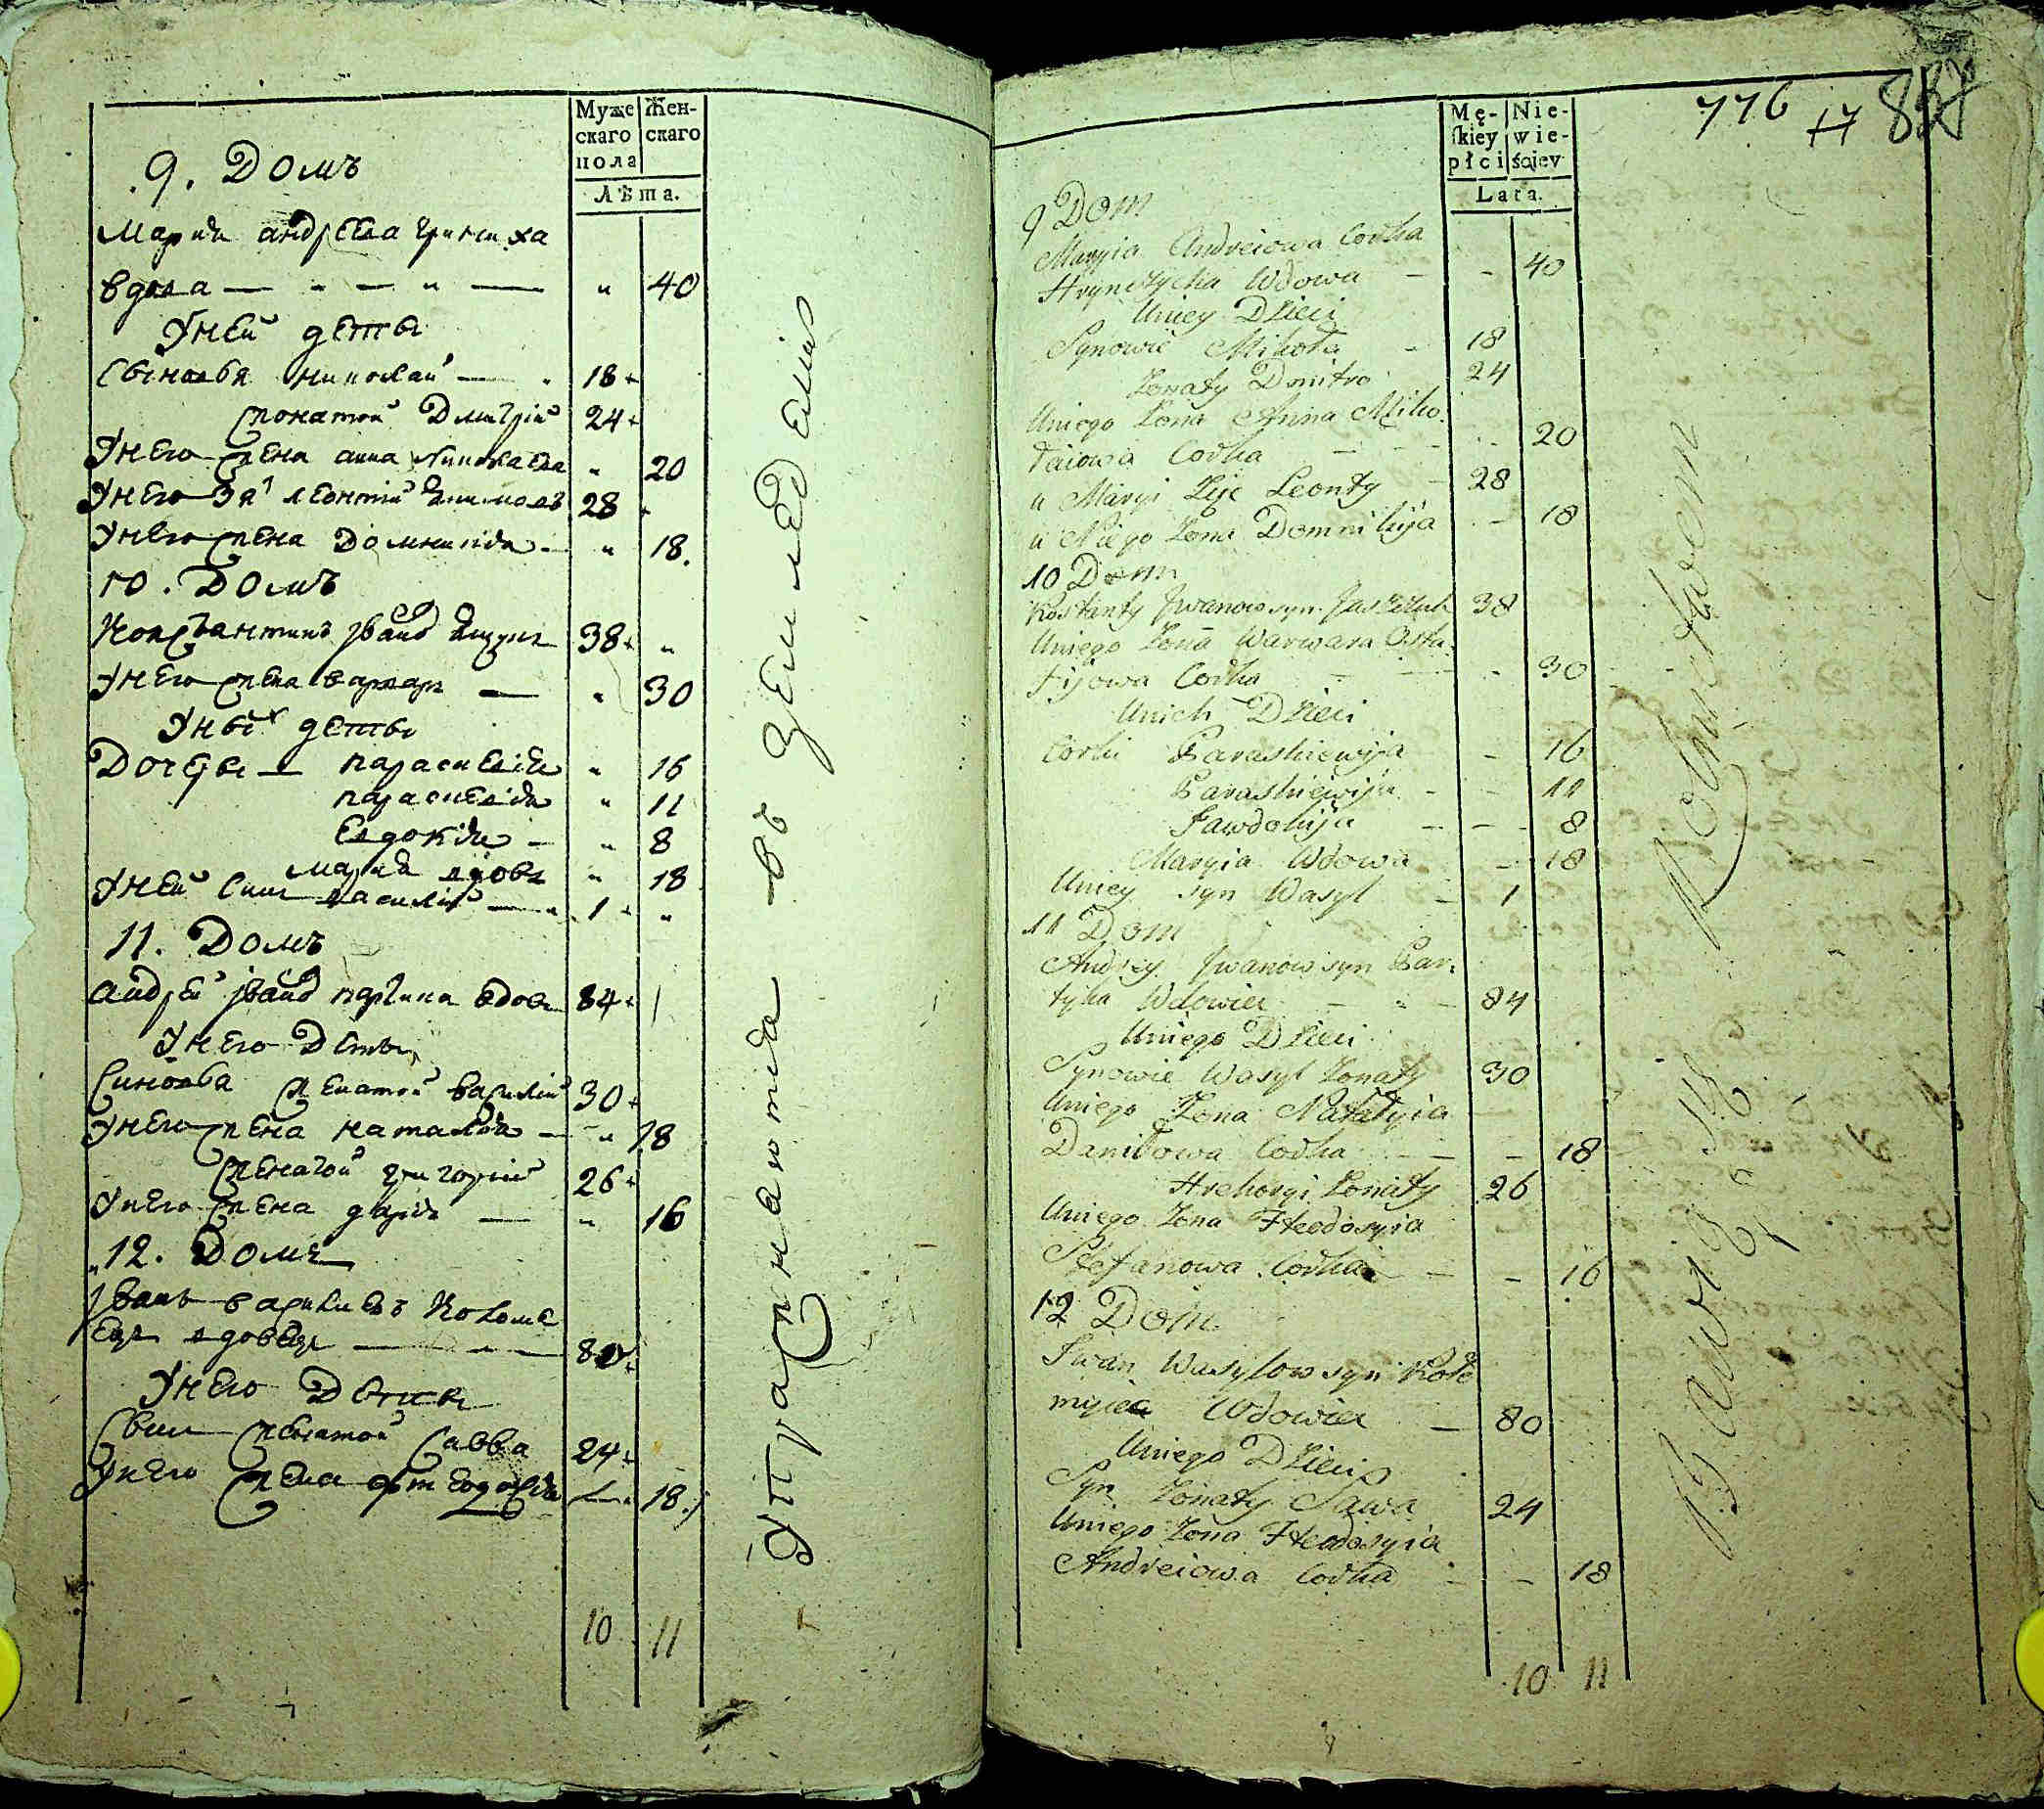 Муже скаго пола
Жен- скаго
Лѣта.
.9. Домъ
Мария андреева гринчиха
вдова — " — " — " 40
Уней дети
Синовья николай — " 18
жонатой Дмитрий 24
Унего жена анна николаева " 20
Унего зят леонтий 28
Унего жена Домникия — " 18.
10. Домъ
Константинъ Иванов ящук 38 "
Унего жена варвара — " 30
Уних дети
Дочери — параскевия " 16
параскевия " 11
Евдокия — " 8
мария вдова " 18
Уней син василий — " 1 "
11. Домъ
андрей Иванов партика вдовец 84
Унего Дети
Синовья женатой василий 30
Унего жена наталия — " 18
женатой григорий 26
Унего жена дария — " 16
"12. Домъ
Иванъ василиевъ Коломе
ецъ вдовец — 80
Унего Дети
Син женатой Савва 24
Унего жена фтеодосия — 18.
10 11
Упражняются въ земледелии
776 17
Mę- skiey płci
Nie- wie- ściey
Lata.
9 Dom
Maryia Andreiowa Corka
Hrynczycha Wdowa — - 40
Uniey Dzieci
Synowie Mikoła - 18
Zonaty Dmitro 24
Uniego Zona Anna Miko
łaiowa Corka — - - - 20
u Maryi Zięć Leonty - 28
u Niego Zona Dominikija - - 18
10 Dom
Kostanty Jwanow syn Jaszczuk 38
Uniego Zona Warwara Osta.
fijowa Corka — - 30
Unich Dzieci
Corki Paraskiewija - 16
Paraskiewija - - 11
Jawdokija — - - 8
Maryia Wdowa - 18
Uniey syn Wasyl - 1
11 Dom
Andrzey Jwanow syn Par.
tyka Wdowiec — " — 84
Uniego Dzieci
Synowie Wasyl Zonaty 30
Uniego Zona Natalyia —
Daniłowa Corka — - 18
Hrehoryi Zonaty 26
Uniego Zona Fteodosyia
Stefanowa Corka — - 16
12 Dom
Iwan Wasylow syn Koło
myiec Wdowiec — 80
Uniego Dzieci
Syn Zonaty Sawa 24
Uniego Zona Fteodosyia
Andreiowa Corka — - 18
10 11
Bawią się Rolnictwem